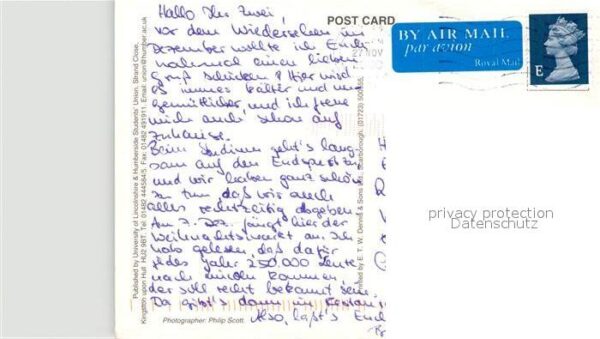 POST CARD
BY AIR MAIL
par avion
Royal Mail
E
27 NOV
Hallo Ihr Zwei,
vor dem Wiedersehen im
Dezember wollte ich Euch
nochmal einen lieben
Gruß schicken! Hier wird
es immer kälter und un-
gemütlicher, und ich freue
mich auch schon auf
zuhause.
Beim Studium geht's lang-
sam auf den Endspurt zu
und wir haben ganz schön
zu tun, daß wir auch
alles rechtzeitig abgeben.
Am 7. Dez. fängt hier der
Weihnachtsmarkt an. Ich
hab gelesen, daß dafür
jedes Jahr 250.000 Leute
nach kommen,
der soll recht bekannt sein.
Da gibt's dann
Also, laßt's Euch
Published by University of Lincolnshire & Humberside Students' Union, Strand Close,
Kingston upon Hull HU2 9BT. Tel: 01482 445684/5 Fax: 01482 491911, Email: union@humber.ac.uk
Printed by E. T. W. Dennis & Sons Ltd., Scarborough. (01723)
Photographer: Philip Scott.
privacy protection
Datenschutz